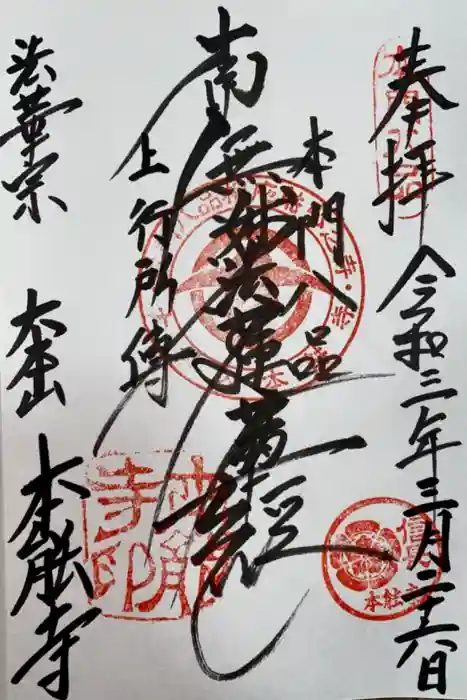 奉拝
令和三年三月二十六日
本門八品
南無妙法蓮華経
上行所傳
法華宗
大本山
本能寺
本能寺印
本能寺